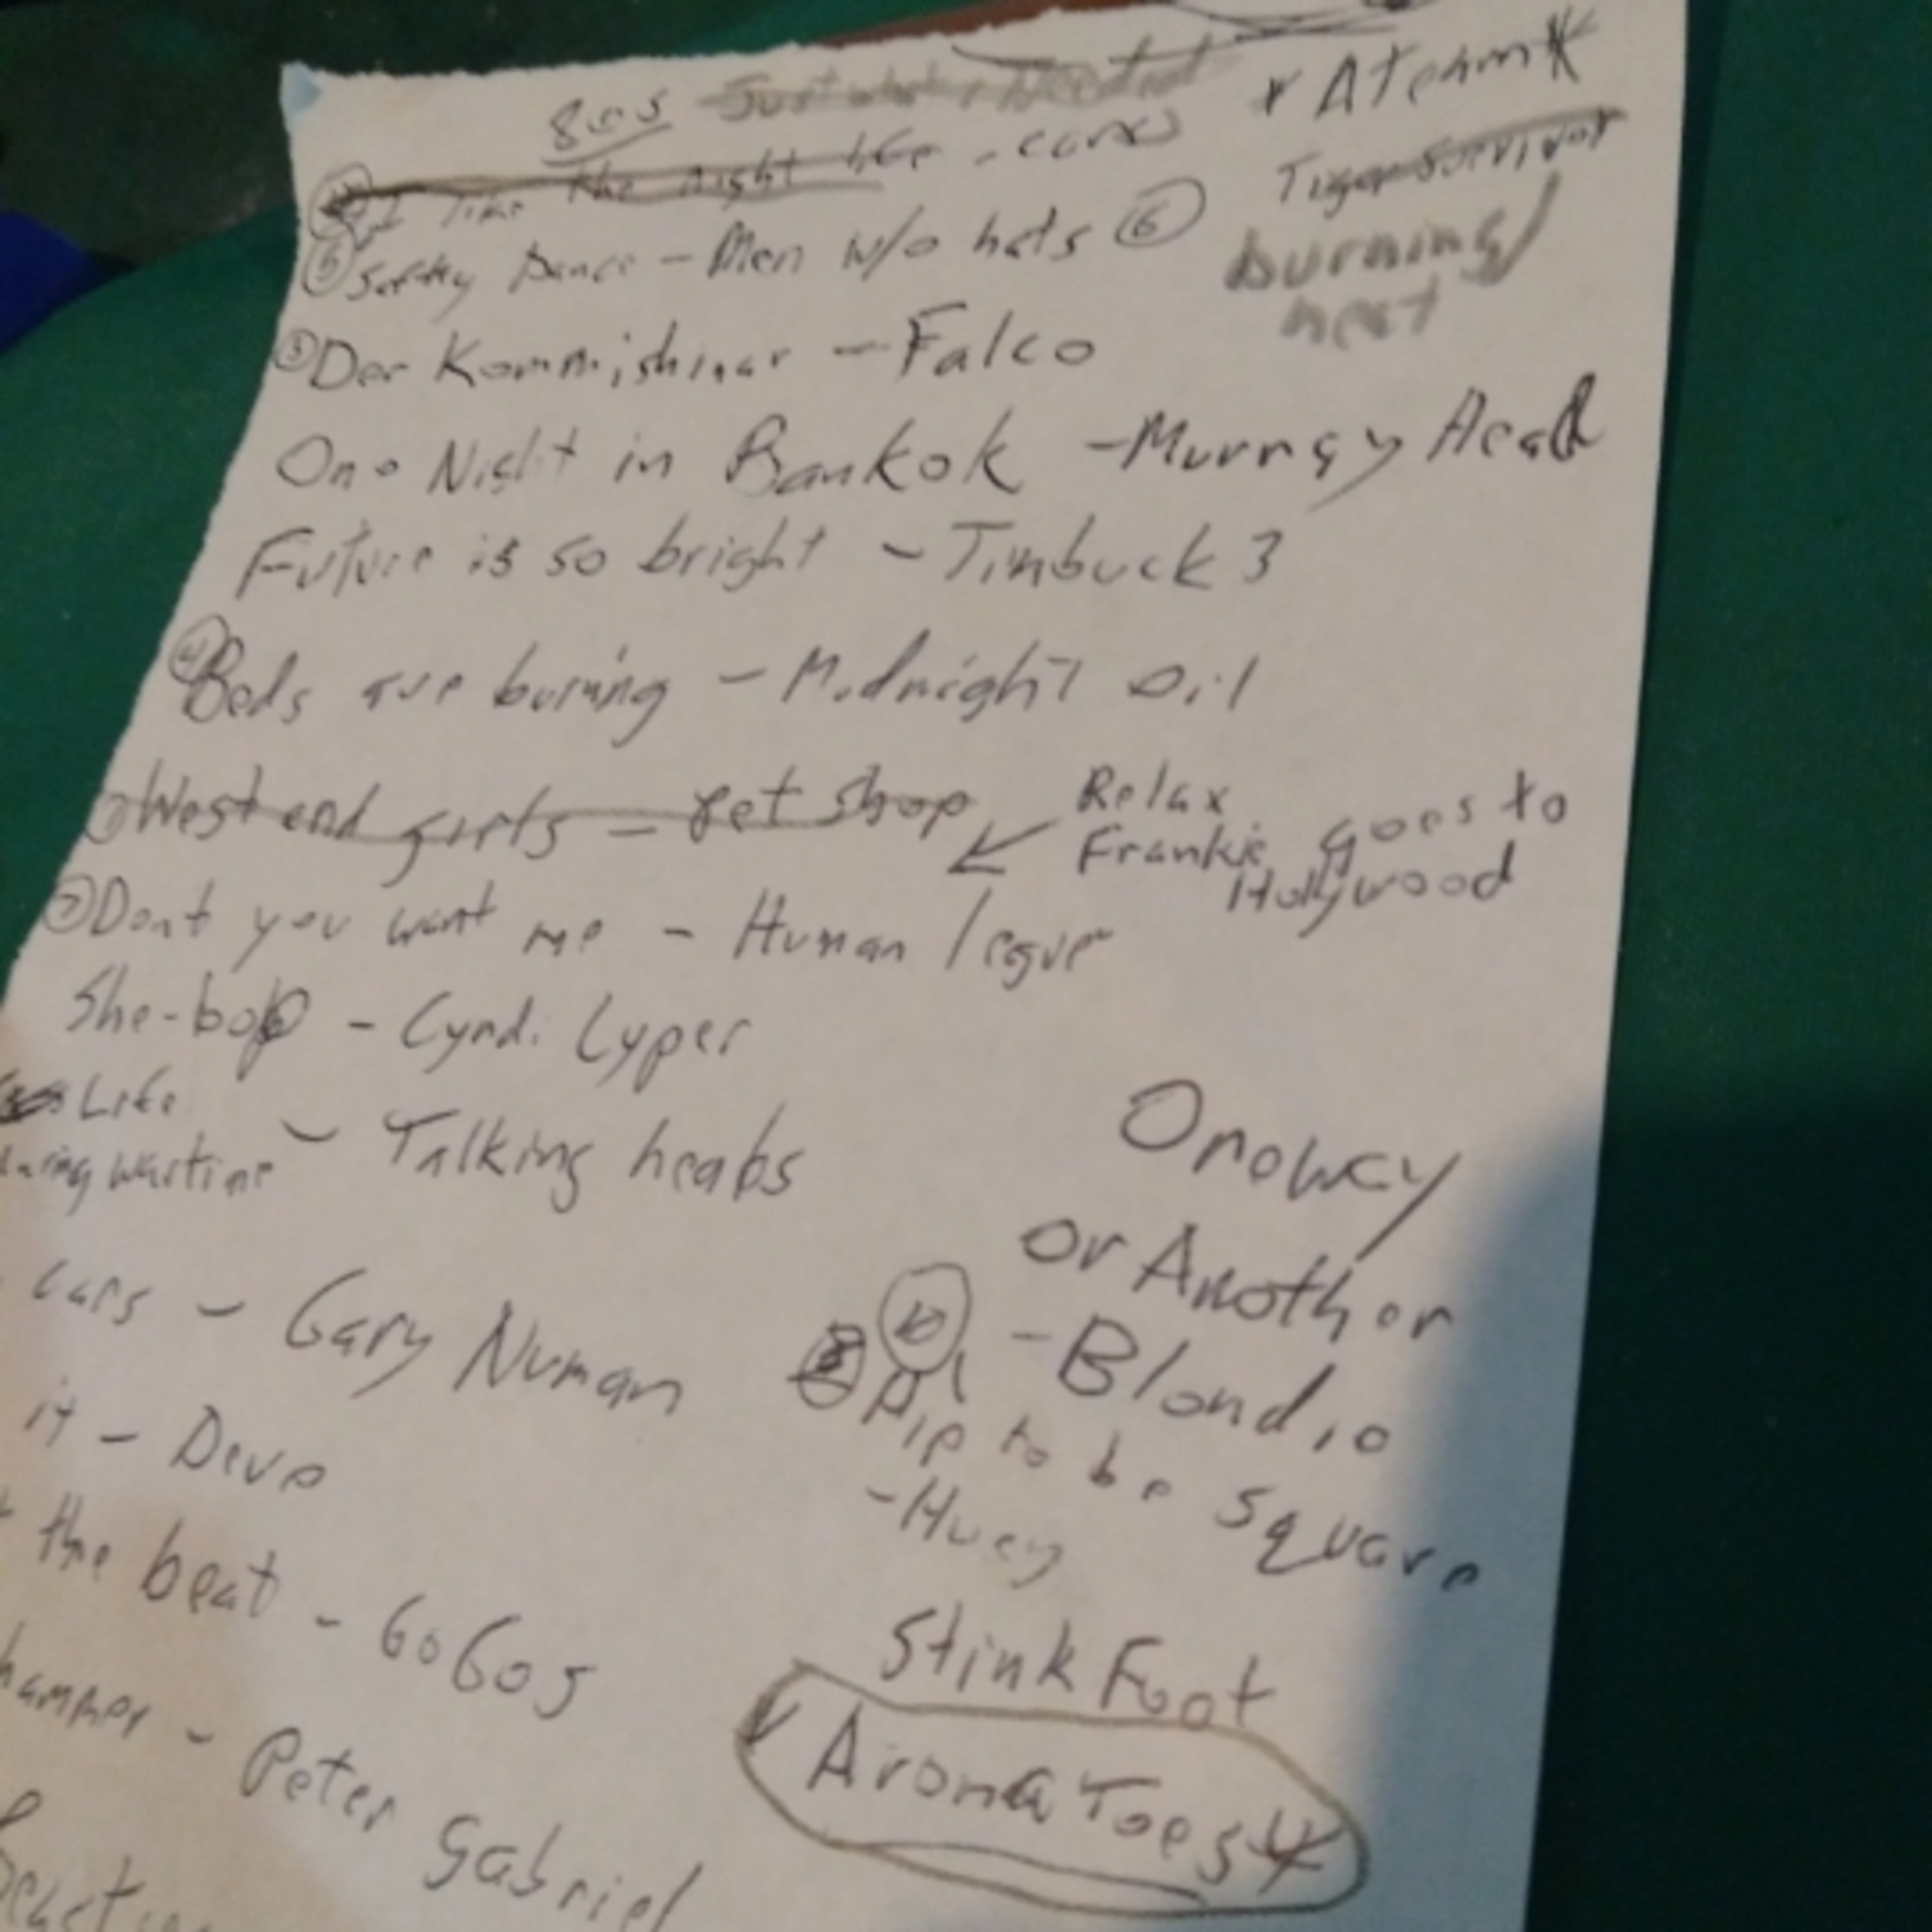 80s Just what I Needed
I like the night life - cars
* A Team *
Tiger Survivor
burning
heat
⑤ Safety Dance - Men w/o hats ⑥
③ Der Kommishinar - Falco
One Night in Bankok - Murray Head
Future is so bright - Timbuck 3
④ Beds are burning - Midnight Oil
West end girls - Pet Shop
Relax
Frankie goes to
Hollywood
⑦ Dont you want me - Human legue
She-bop - Cyndi Lyper
Life
during wartime - Talking heabs
Cars - Gary Numan
it - Devo
the beat - GoGos
hammer - Peter Gabriel
Oneway
or Another
⑩ - Blondie
Hip to be square
- Huey
Stink Foot
Aroma Toes